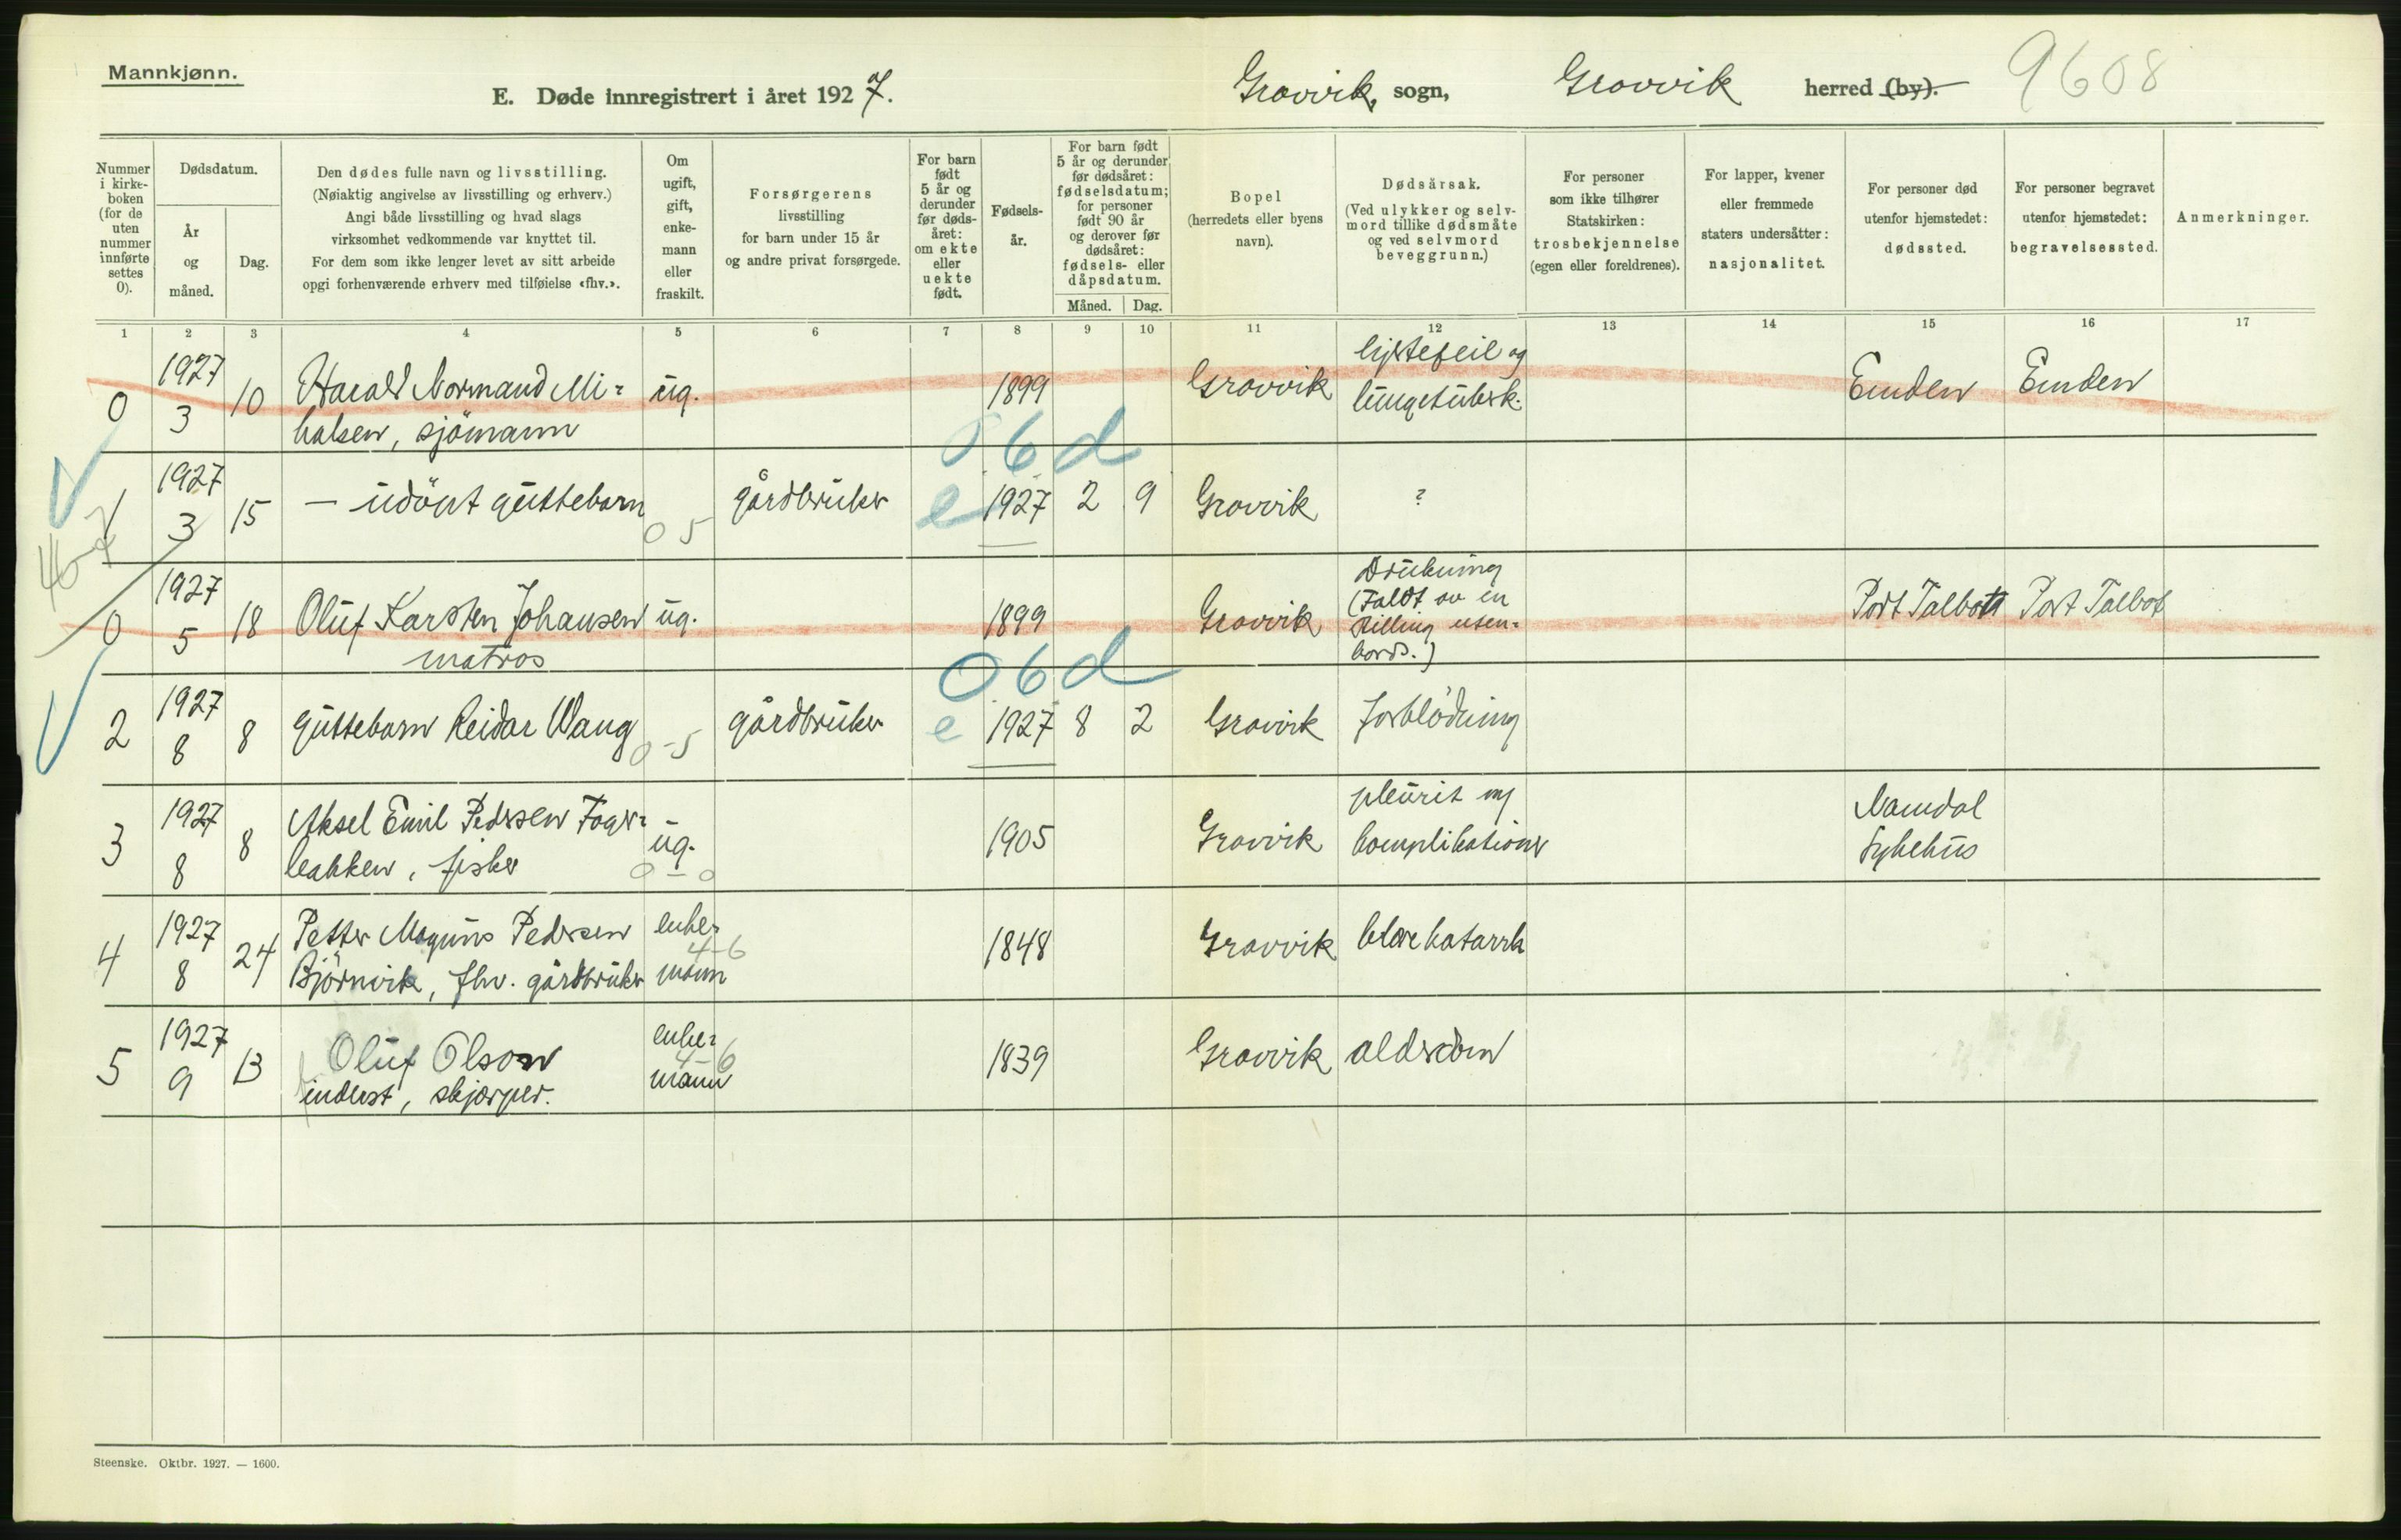 Mannkjønn.
E. Døde innregistrert i året 1927.
Gravvik, sogn, Gravvik herred (by). 9608
Nummer i kirke-boken (for de uten nummer innførte settes 0).
Dødsdatum.
År og måned.
Dag.
Den dødes fulle navn og livsstilling.
(Nøiaktig angivelse av livsstilling og erhverv.)
Angi både livsstilling og hvad slags
virksomhet vedkommende var knyttet til.
For dem som ikke lenger levet av sitt arbeide
opgi forhenværende erhverv med tilføielse «fhv.».
Om ugift, gift, enke-mann eller fraskilt.
Forsørgerens
livsstilling
for barn under 15 år
og andre privat forsørgede.
For barn født 5 år og derunder før døds-året: om ekte eller uekte født.
Fødsels-år.
For barn født 5 år og derunder før dødsåret: fødselsdatum; for personer født 90 år og derover før dødsåret: fødsels- eller dåpsdatum.
Måned. Dag.
Bopel
(herredets eller byens
navn).
Dødsårsak.
(Ved ulykker og selv-
mord tillike dødsmåte
og ved selvmord
beveggrunn.)
For personer
som ikke tilhører
Statskirken:
trosbekjennelse
(egen eller foreldrenes).
For lapper, kvener
eller fremmede
staters undersåtter:
nasjonalitet.
For personer død
utenfor hjemstedet:
dødssted.
For personer begravet
utenfor hjemstedet:
begravelsessted.
Anmerkninger.
1 2 3 4 5 6 7 8 9 10 11 12 13 14 15 16 17
0 1927 3 10 Harald Normand Mi-
kalsen, sjömann ug. 1899 Gravvik hjertefeil og
lungetuberk. Emden Emden
06d
1 1927 3 15 – udöpt guttebarn 05 gårdbruker e 1927 2 9 Gravvik ?
0 1927 5 18 Oluf Karsten Johansen
matros ug. 1899 Gravvik Drukning
(Faldt av en
Stilling uten-
bords.) Port Talbott Port Talbot
06d
2 1927 8 8 guttebarn Reidar Wang 0-5 gårdbruker e 1927 8 2 Gravvik forblödning
3 1927 8 8 Aksel Emil Pedersen Fager-
bakken, fisker ug. 0-0 1905 Gravvik pleurit og
komplikationer Namdal
Sykehus
4 1927 8 24 Petter Magnus Pedersen
Björnvik, fhv. gårdbruker enke-
mann 4-6 1848 Gravvik blærekatarrh
5 1927 9 13 Oluf Olson
inderst, skjærper. enke-
mann 4-6 1839 Gravvik alderdom
Steenske. Oktbr. 1927. — 1600.